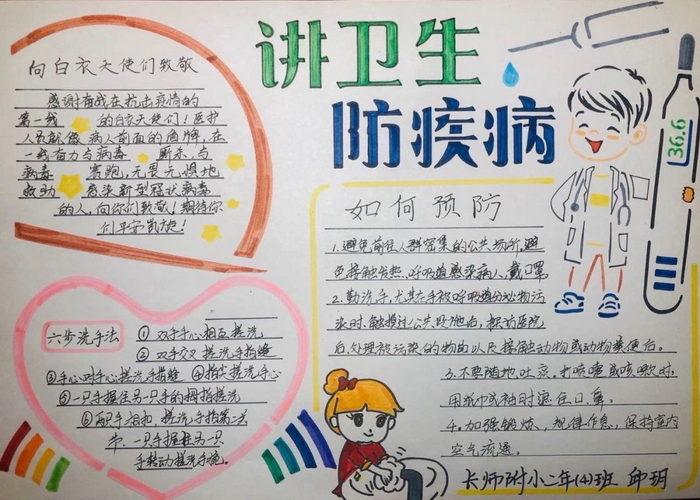 讲卫生
防疾病
向白衣天使们致敬
感谢奋战在抗击疫情的
第一线 的白衣天使们！医护
人员就像 病人前面的盾牌，在
一线奋力与病毒 厮杀，与
病毒 赛跑，无畏无惧地
救助 感染新型冠状病毒
的人，向你们致敬！期待你
们平安凯旋！
36.6
如何预防
1.避免前往人群密集的公共场所，避
免接触发热、呼吸道感染病人，戴口罩
2.勤洗手，尤其在手被呼吸道分泌物污
染时、触摸过公共设施后、探访医院
后、处理被污染的物品以及接触动物或动物粪便后。
3.不要随地吐痰，打喷嚏或咳嗽时
用纸巾或袖时遮住口鼻。
4.加强锻炼，规律作息，保持室内
空气流通。
六步洗手法
①双手手心相互搓洗
②双手交叉搓洗手指缝
③手心对手心搓洗手指缝 ④指尖搓洗手心
⑤一只手握住另一只手的拇指搓洗
⑥两只手相扣，搓洗手指第二关
节，一只手握住另一只
手转动搓洗手腕。
长师附小二年(4)班 邱玥